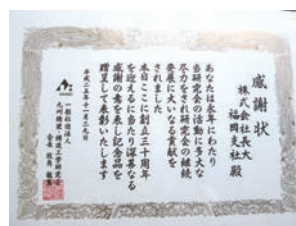 感謝状
株式会社長大
福岡支社殿
あなたは永年にわたり
当研究会の活動に多大な
尽力をされ研究会の継続
発展に大いなる貢献を
されました
本日ここに創立三十周年
を迎えるに当たり深甚なる
感謝の意を表し記念品を
贈呈して表彰いたします
平成二五年十一月二九日
一般社団法人
九州橋梁・構造工学研究会
会長